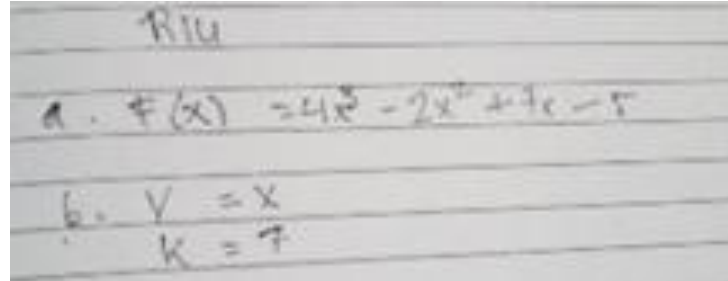 RIU
a. F(x) = 4x³ - 2x² + 7x - 5
b. V = x
K = 7